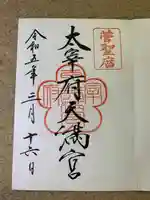 菅聖廟
太宰府天満宮
令和五年三月十六日